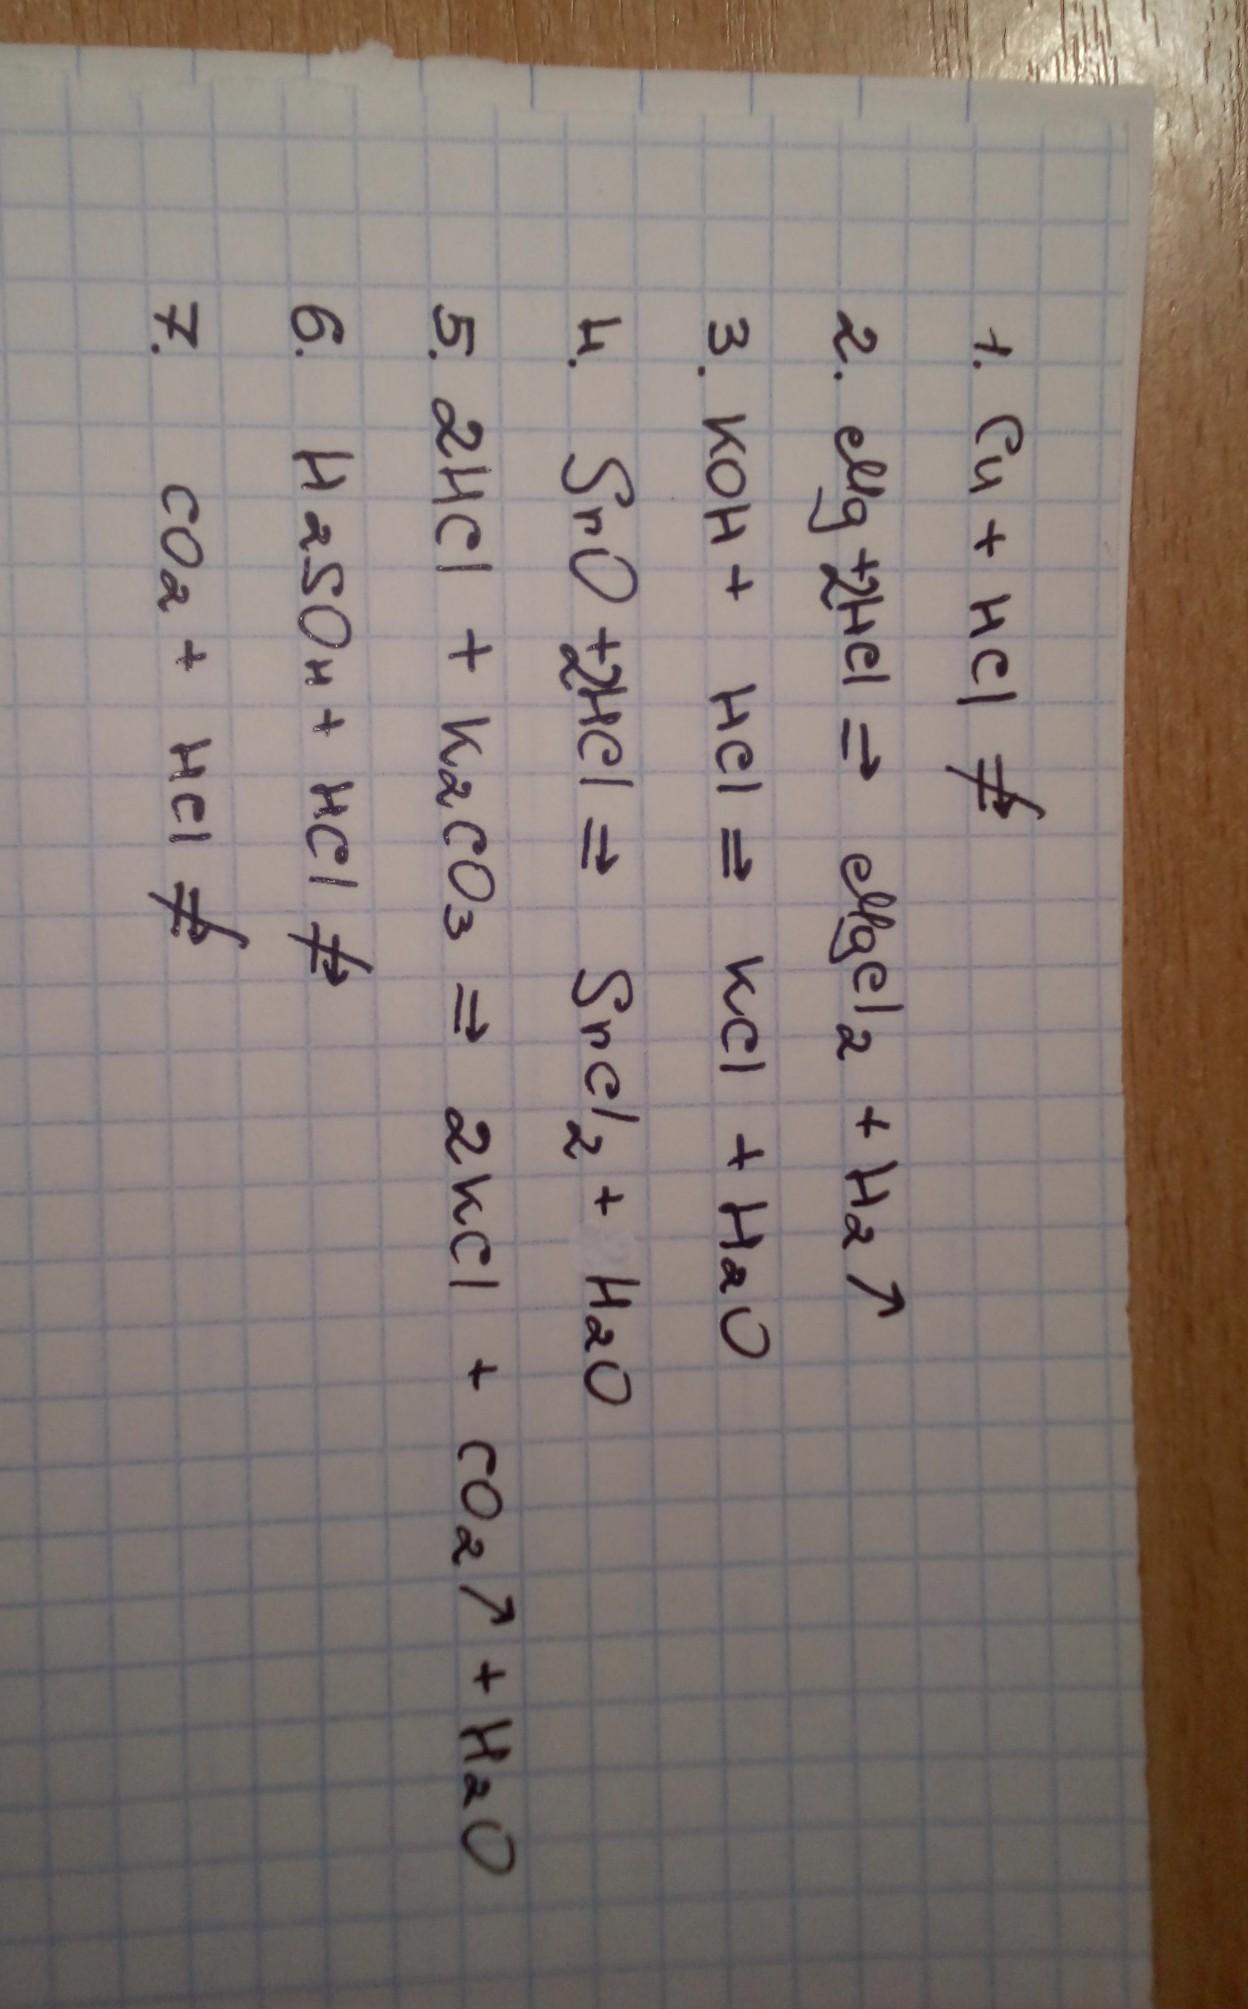 1. Cu + HCl ≠>
2. Mg + 2HCl => MgCl2 + H2↑
3. KOH + HCl => KCl + H2O
4. SrO + 2HCl => SrCl2 + H2O
5. 2HCl + K2CO3 => 2KCl + CO2↑ + H2O
6. H2SO4 + HCl ≠>
7. CO2 + HCl ≠>